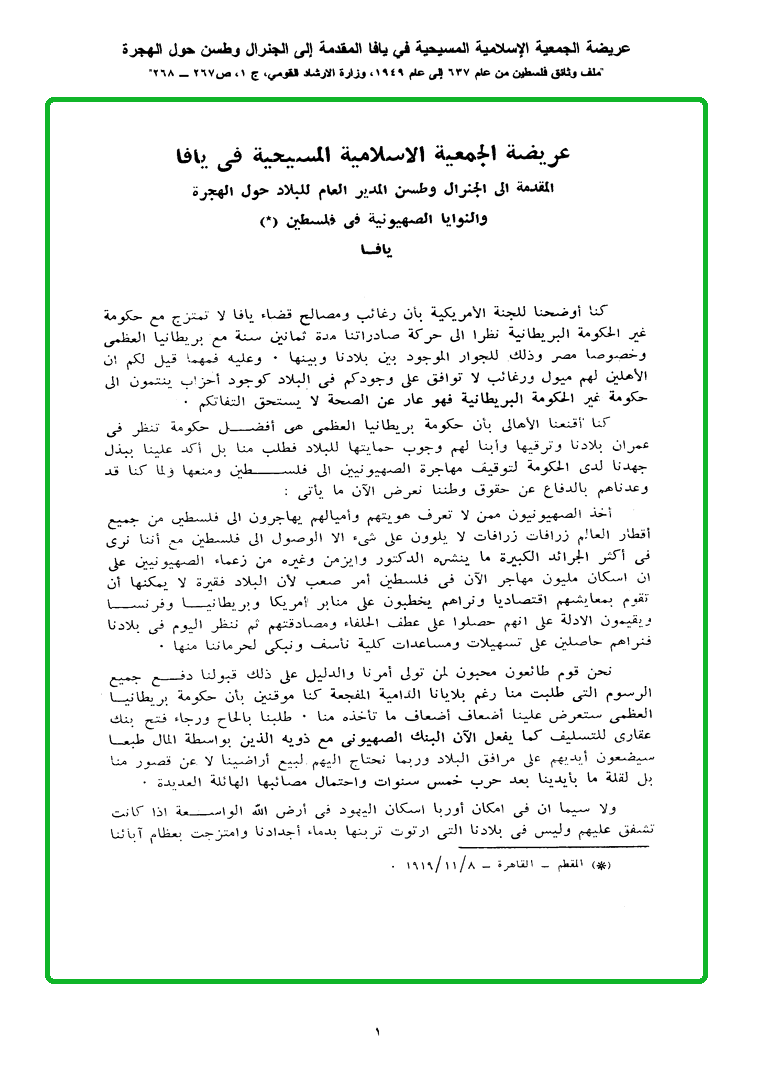 عريضة الجمعية الإسلامية المسيحية في يافا المقدمة إلى الجنرال وطسن حول الهجرة
"ملف وثائق فلسطين من عام ٦٣٧ إلى عام ١٩٤٩، وزارة الارشاد القومي، ج ١، ص٢٦٧ – ٢٦٨"
عريضة الجمعية الاسلامية المسيحية فى يافا
المقدمة الى الجنرال وطسن المدير العام للبلاد حول الهجرة
والنوايا الصهيونية فى فلسطين (*)
يافـا
كنا أوضحنا للجنة الأمريكية بأن رغائب ومصالح قضاء يافا لا تمتزج مع حكومة
غير الحكومة البريطانية نظرا الى حركة صادراتنا مدة ثمانين سنة مع بريطانيا العظمى
وخصوصا مصر وذلك للجوار الموجود بين بلادنا وبينها ٠ وعليه فمهما قيل لكم ان
الأهلين لهم ميول ورغائب لا توافق على وجودكم فى البلاد كوجود أحزاب ينتمون الى
حكومة غير الحكومة البريطانية فهو عار عن الصحة لا يستحق التفاتكم ٠
كنا أقنعنا الأهالى بأن حكومة بريطانيا العظمى هى أفضـــل حكومة تنظر فى
عمران بلادنا وترقيها وأبنا لهم وجوب حمايتها للبلاد فطلب منا بل أكد علينا ببذل
جهدنا لدى الحكومة لتوقيف مهاجرة الصهيونيين الى فلســـــطين ومنعها ولما كنا قد
وعدناهم بالدفاع عن حقوق وطننا نعرض الآن ما يأتى :
أخذ الصهيونيون ممن لا تعرف هويتهم وأميالهم يهاجرون الى فلسطين من جميع
أقطار العالم زرافات زرافات لا يلوون على شىء الا الوصول الى فلسطين مع أننا نرى
فى أكثر الجرائد الكبيرة ما ينشره الدكتور وايزمن وغيره من زعماء الصهيونيين على
ان اسكان مليون مهاجر الآن فى فلسطين أمر صعب لأن البلاد فقيرة لا يمكنها أن
تقوم بمعايشهم اقتصاديا ونراهم يخطبون على منابر أمريكا وبريطانيـــا وفرنســـا
ويقيمون الادلة على انهم حصلوا على عطف الحلفاء ومصادقتهم ثم ننظر اليوم فى بلادنا
فنراهم حاصلين على تسهيلات ومساعدات كلية نأسف ونبكى لحرماننا منها ٠
نحن قوم طائعون محبون لمن تولى أمرنا والدليل على ذلك قبولنا دفــع جميع
الرسوم التى طلبت منا رغم بلايانا الدامية المفجعة كنا موقنين بأن حكومة بريطانيـــا
العظمى ستعرض علينا أضعاف أضعاف ما تأخذه منا ٠ طلبنا بالحاح ورجاء فتح بنك
عقارى للتسليف كما يفعل الآن البنك الصهيونى مع ذويه الذين بواسطة المال طبعـا
سيضعون أيديهم على مرافق البلاد وربما نحتاج اليهم لبيع أراضينا لا عن قصور منا
بل لقلة ما بأيدينا بعد حرب خمس سنوات واحتمال مصائبها الهائلة العديدة ٠
ولا سيما ان فى امكان أوربا اسكان اليهود فى أرض الله الواســـعة اذا كانت
تشفق عليهم وليس فى بلادنا التى ارتوت تربتها بدماء أجدادنا وامتزجت بعظام آبائنا
(*) المقطم – القاهرة – ١٩١٩/١١/٨ ٠
١